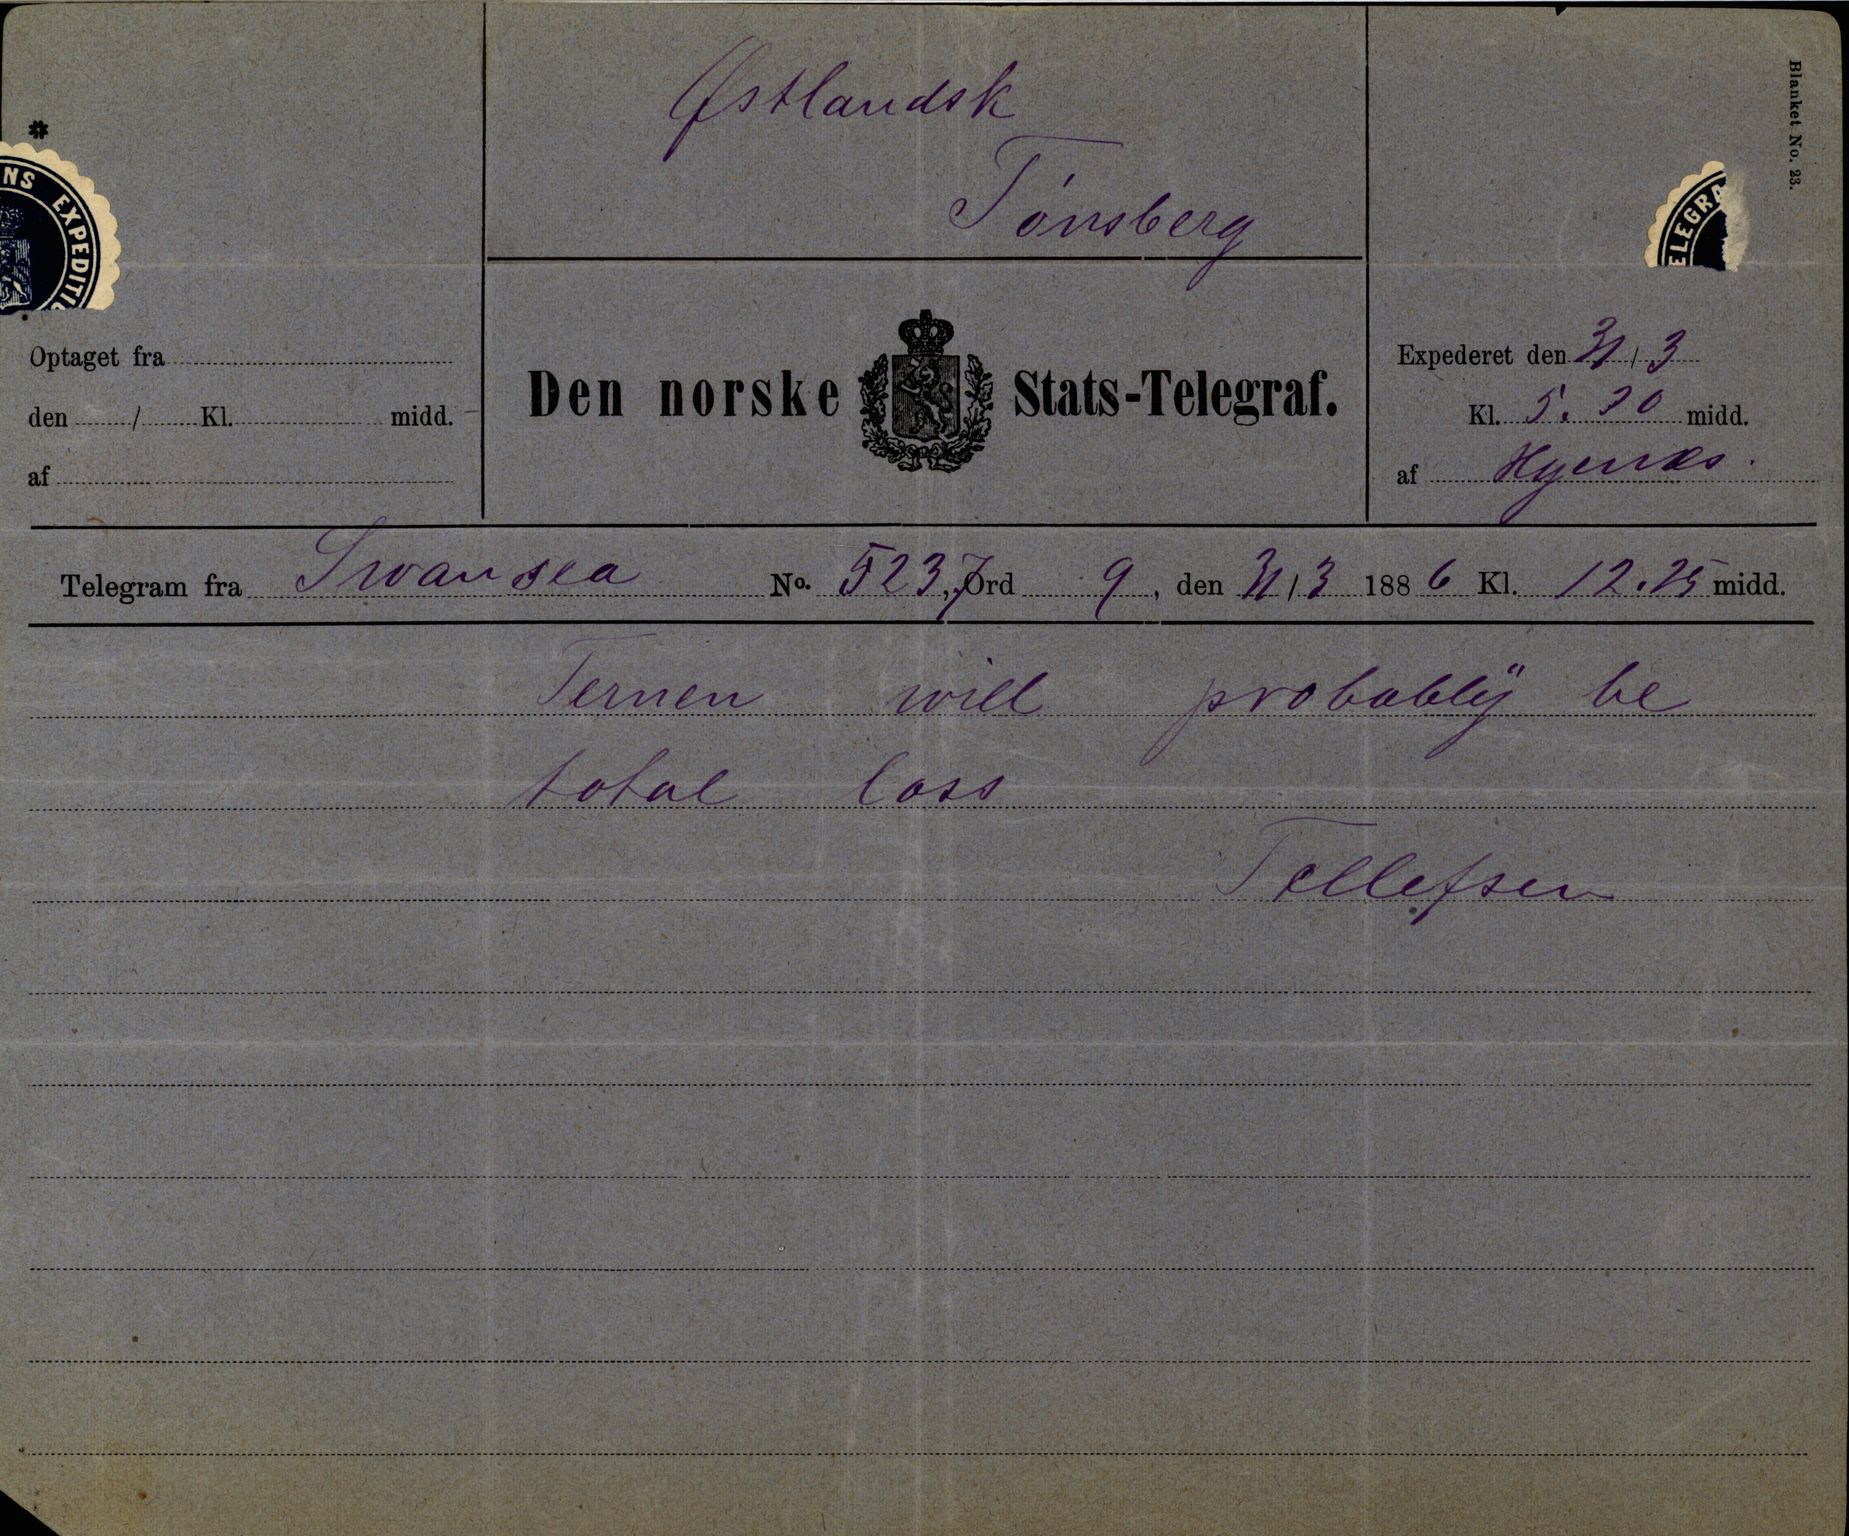 Østlandsk
Tønsberg
Blanket No. 23.
*
NS EXPEDITIO
ELEGRA
Optaget fra
den / Kl. midd.
af
Den norske Stats-Telegraf.
Expederet den 31/3
Kl. 5.30 midd.
af
Telegram fra Swansea No. 5237, Ord 9, den 31/3 1886 Kl. 12.25 midd.
Ternen will probably be
total loss
Tellefsen